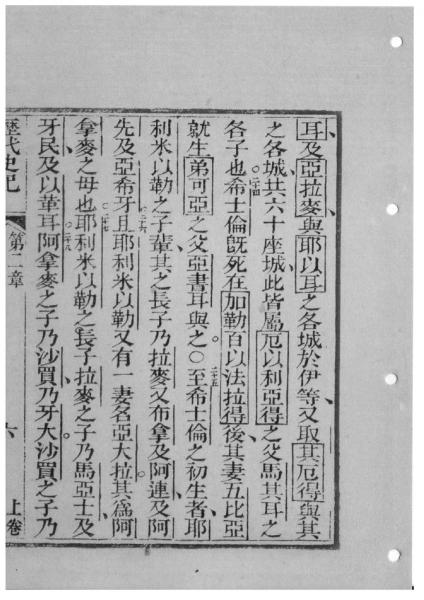 耳及亞拉麥與耶以耳之各城於伊等又取其厄得與其
之各城共六十座城此皆屬厄以利亞得之父馬其耳之
各子也二十四希士倫旣死在加勒百以法拉得後其妻五比亞
就生弟可亞之父亞書耳與之○二十五至希士倫之初生者耶
利米以勒之子輩其之長子乃拉麥又布拿及阿連及阿
先及亞希牙二十六且耶利米以勒又有一妻名亞大拉其為阿
拿麥之母也二十七耶利米以勒之長子拉麥之子乃馬亞士及
牙民及以革耳二十八阿拿麥之子乃沙買乃牙大沙買之子乃
歷代史記 第二章 六 上卷